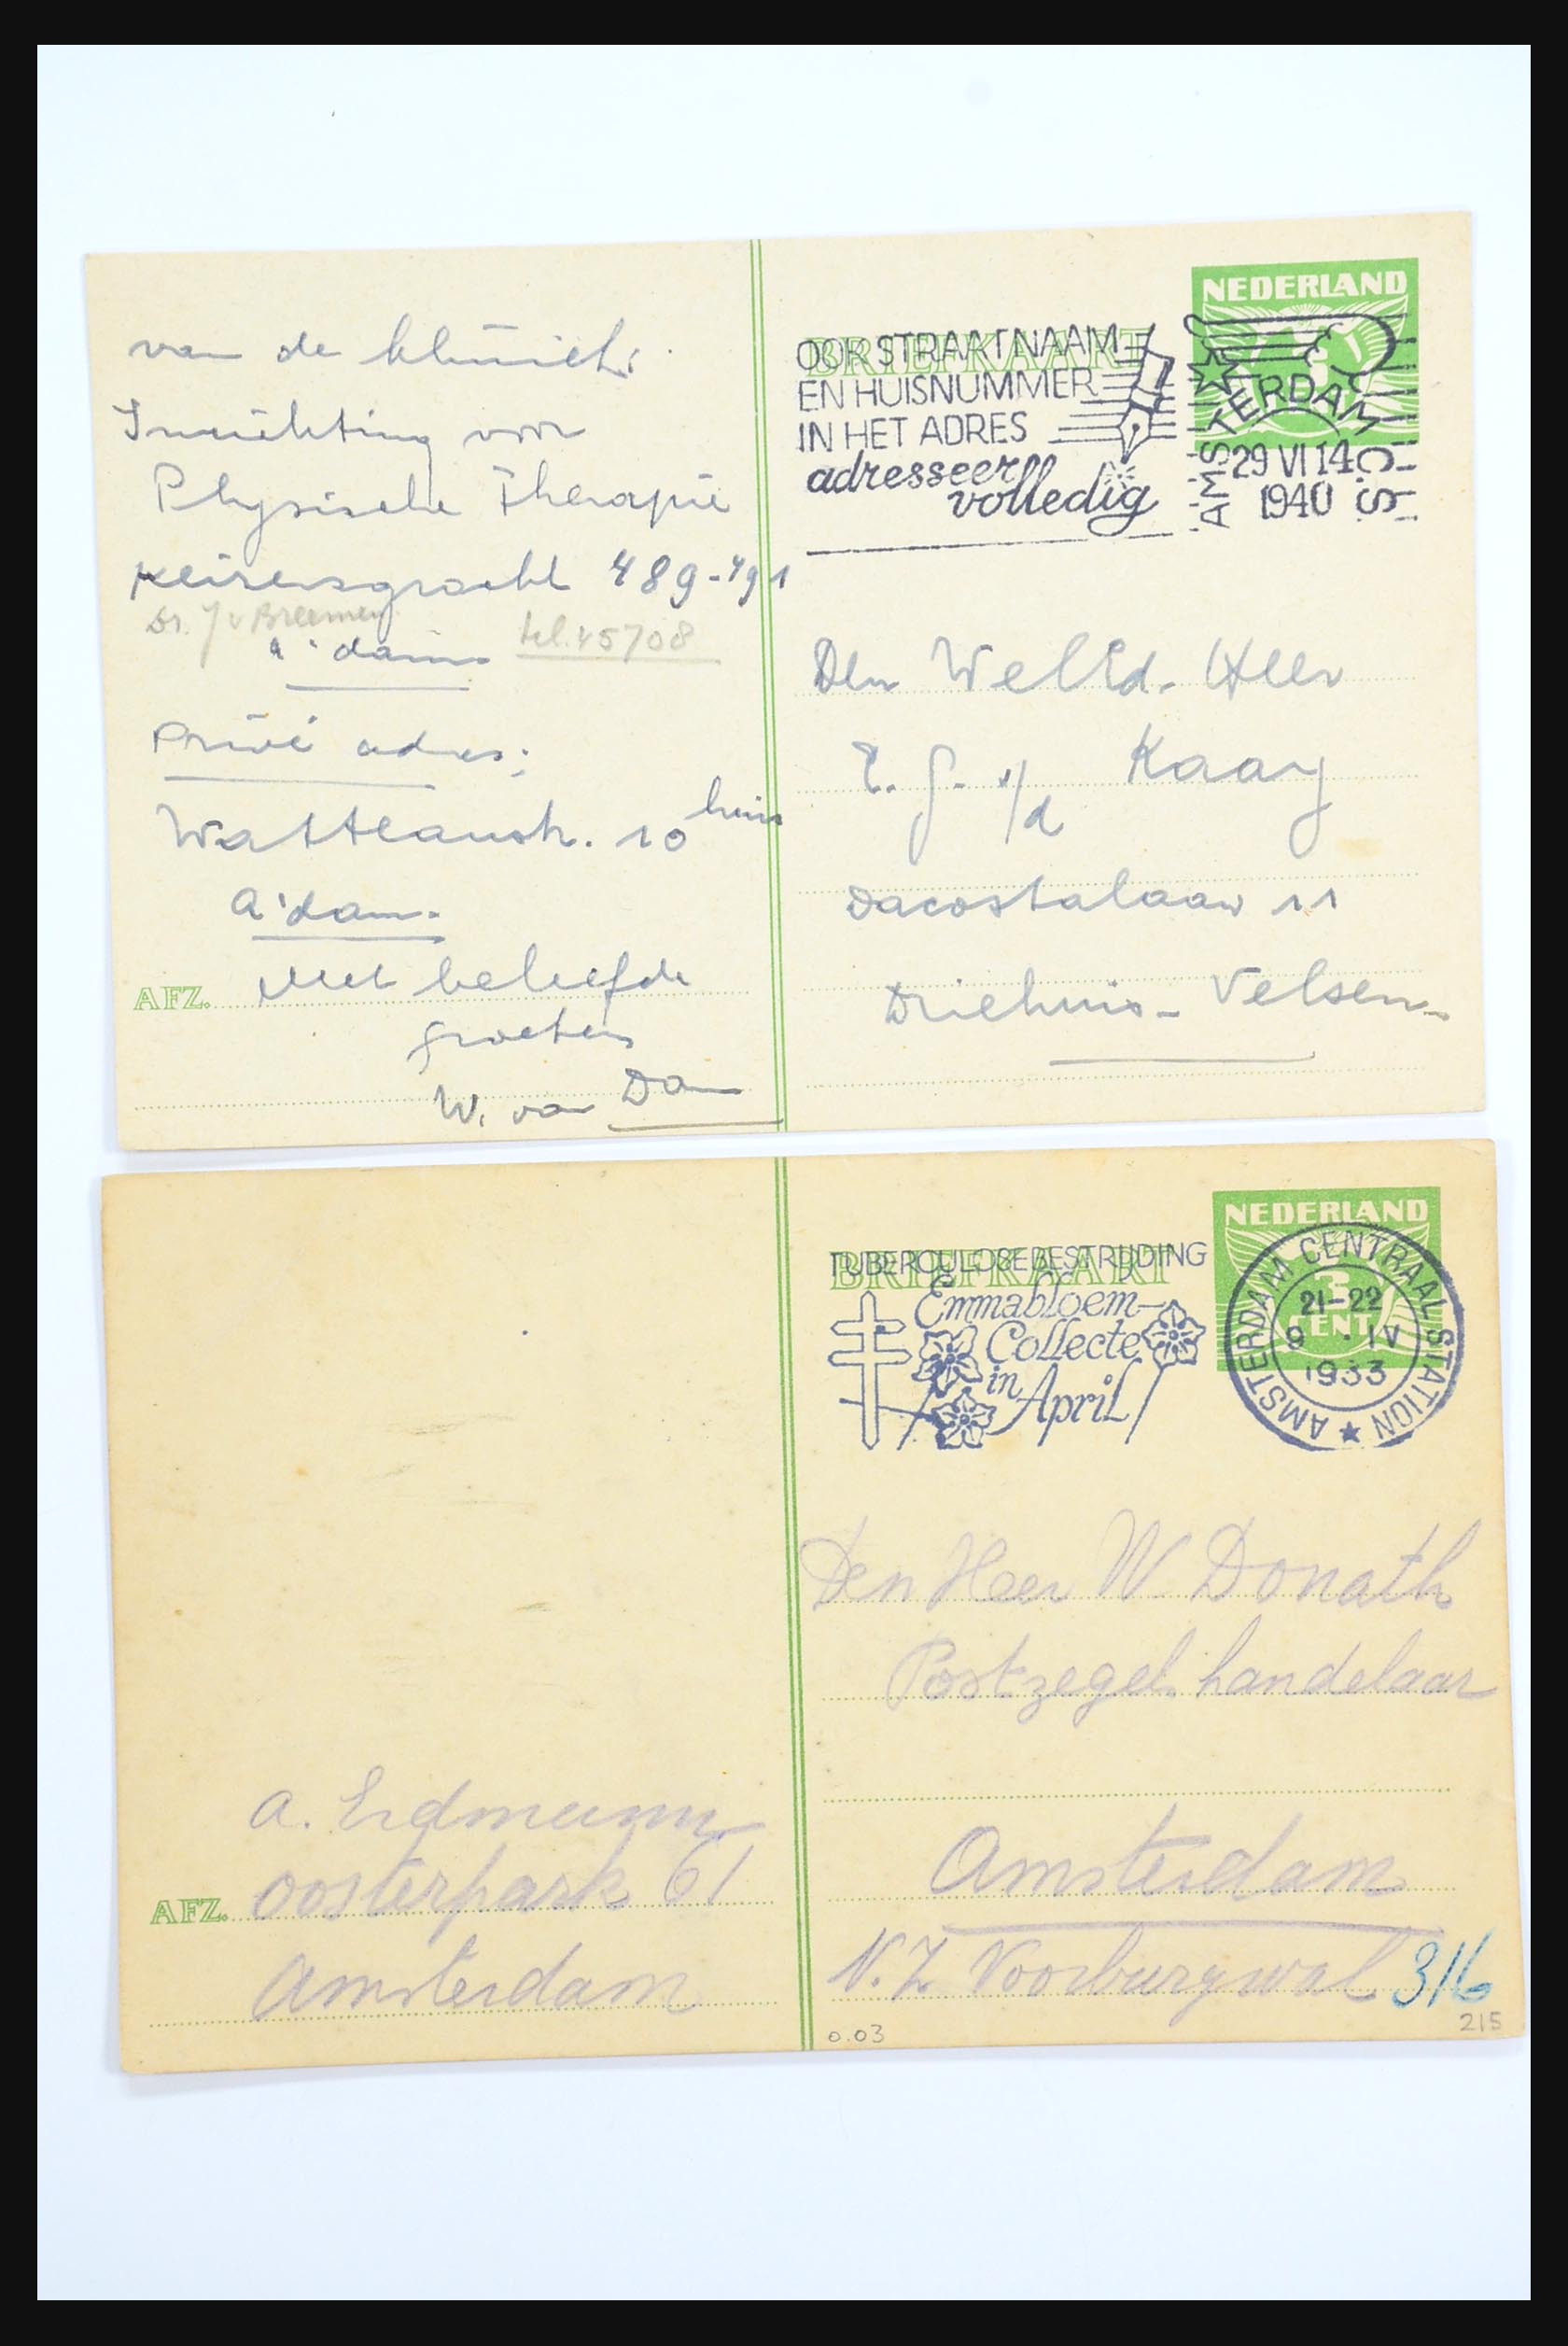 van de kliniek:
Inrichting voor
Physische Therapie
Keizersgracht 489-491
Dr. J v Breemen
tel. 45708
A'dam
Privé adres:
Watteaustr. 10 huis
A'dam.
AFZ. Met beleefde
groeten
W. van Dam
BRIEFKAART
OOK STRAATNAAM
EN HUISNUMMER
IN HET ADRES
adresseer
volledig
NEDERLAND
AMSTERDAM C.S.
29 VI 14
1940
Den WelEd. Heer
E. G. v/d Kaay
Dacostalaan 11
Driehuis-Velsen
BRIEFKAART
TUBERCULOSEBESTRIJDING
Emmabloem-
Collecte
in
April
NEDERLAND
3
CENT
AMSTERDAM CENTRAAL STATION
21-22
9 · IV
1933
Den Heer W. Donath
Postzegelhandelaar
Amsterdam
N.Z Voorburgwal 316
0.03
215
A. Erdmann
AFZ. Oosterpark 61
Amsterdam